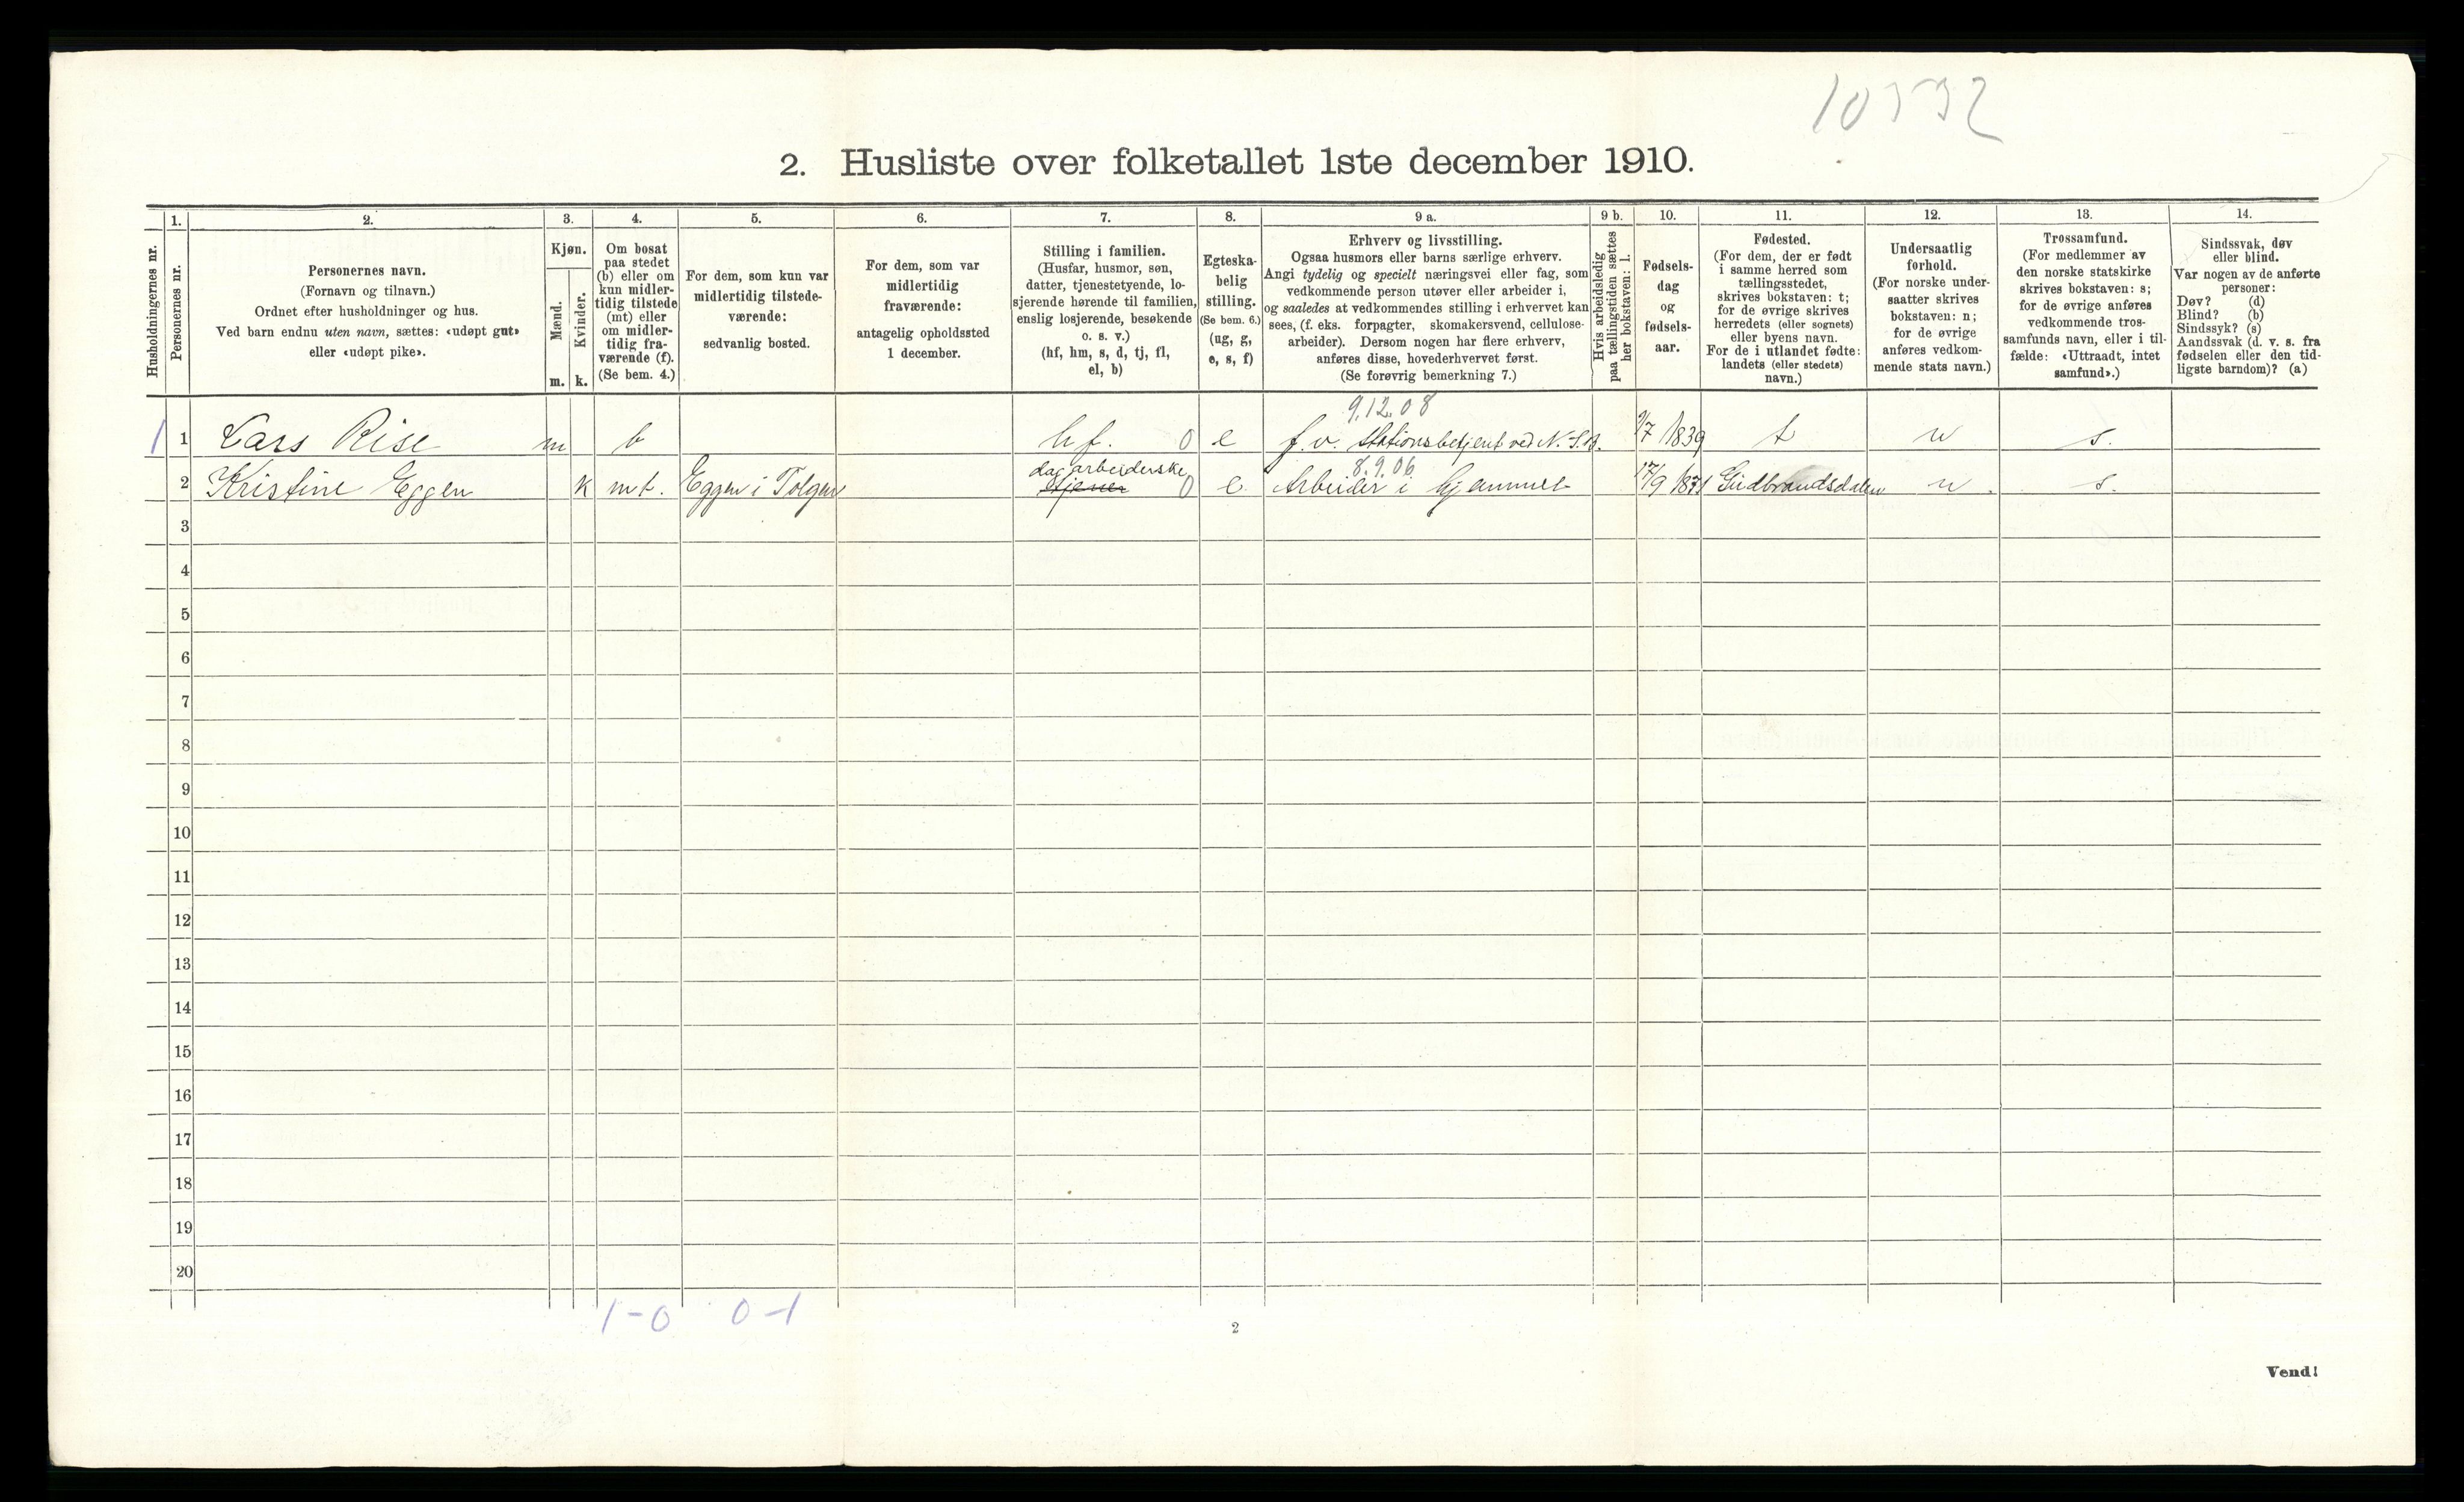 10532
2. Husliste over folketallet 1ste december 1910.
Husholdningernes nr.
1.
Personernes nr.
2.
Personernes navn.
(Fornavn og tilnavn.)
Ordnet efter husholdninger og hus.
Ved barn endnu uten navn, sættes: «udøpt gut»
eller «udøpt pike».
3.
Kjøn.
Mænd.
Kvinder.
m. k.
4.
Om bosat
paa stedet
(b) eller om
kun midler-
tidig tilstede
(mt) eller
om midler-
tidig fra-
værende (f).
(Se bem. 4.)
5.
For dem, som kun var
midlertidig tilstede-
værende:
sedvanlig bosted.
6.
For dem, som var
midlertidig
fraværende:
antagelig opholdssted
1 december.
7.
Stilling i familien.
(Husfar, husmor, søn,
datter, tjenestetyende, lo-
sjerende hørende til familien,
enslig losjerende, besøkende
o. s. v.)
(hf, hm, s, d, tj, fl,
el, b)
8.
Egteska-
belig
stilling.
(Se bem. 6.)
(ug, g,
e, s, f)
9 a.
Erhverv og livsstilling.
Ogsaa husmors eller barns særlige erhverv.
Angi tydelig og specielt næringsvei eller fag, som
vedkommende person utøver eller arbeider i,
og saaledes at vedkommendes stilling i erhvervet kan
sees, (f. eks. forpagter, skomakersvend, cellulose-
arbeider). Dersom nogen har flere erhverv,
anføres disse, hovederhvervet først.
(Se forøvrig bemerkning 7.)
9 b.
Hvis arbeidsledig
paa tællingstiden sættes
her bokstaven: l.
10.
Fødsels-
dag
og
fødsels-
aar.
11.
Fødested.
(For dem, der er født
i samme herred som
tællingsstedet,
skrives bokstaven: t;
for de øvrige skrives
herredets (eller sognets)
eller byens navn.
For de i utlandet fødte:
landets (eller stedets)
navn.)
12.
Undersaatlig
forhold.
(For norske under-
saatter skrives
bokstaven: n;
for de øvrige
anføres vedkom-
mende stats navn.)
13.
Trossamfund.
(For medlemmer av
den norske statskirke
skrives bokstaven: s;
for de øvrige anføres
vedkommende tros-
samfunds navn, eller i til-
fælde: «Uttraadt, intet
samfund».)
14.
Sindssvak, døv
eller blind.
Var nogen av de anførte
personer:
Døv? (d)
Blind? (b)
Sindssyk? (s)
Aandssvak (d. v. s. fra
fødselen eller den tid-
ligste barndom)? (a)
9.12.08
1 1 Lars Rise m b hf. 0 e f. v. Stationsbetjent ved N. S. B. 9/7 1839 t n s.
dagarbeiderske 8.9.06
2 Kristine Eggen k mt. Eggen i Tolgen tjener 0 e Arbeider i hjemmet 17/9 1871 Gudbrandsdalen n. s.
3
4
5
6
7
8
9
10
11
12
13
14
15
16
17
18
19
20
1-0 0-1
2
Vend!